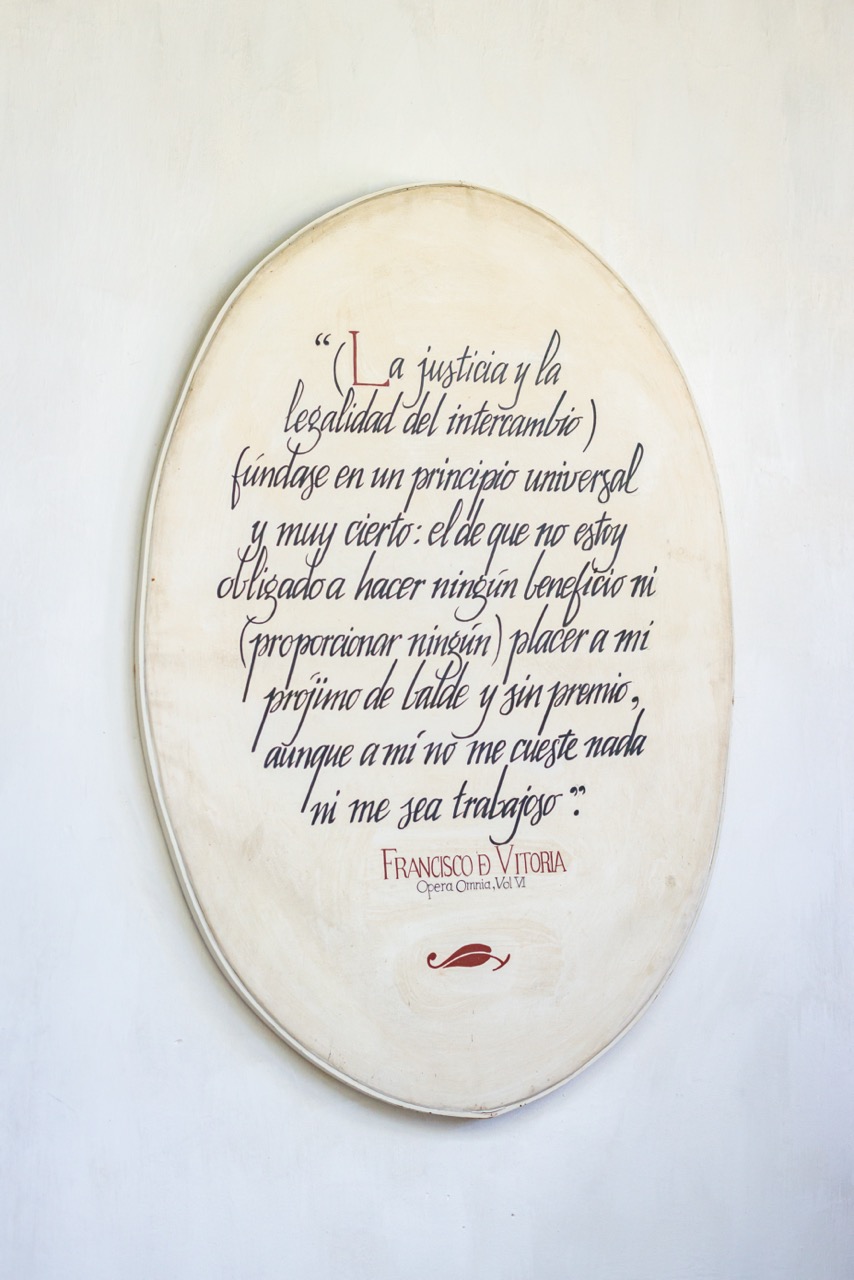 “(La justicia y la
legalidad del intercambio)
fúndase en un principio universal
y muy cierto: el de que no estoy
obligado a hacer ningún beneficio ni
(proporcionar ningún) placer a mi
prójimo de balde y sin premio,
aunque a mí no me cueste nada
ni me sea trabajoso”.
FRANCISCO DE VITORIA
Opera Omnia, Vol VI